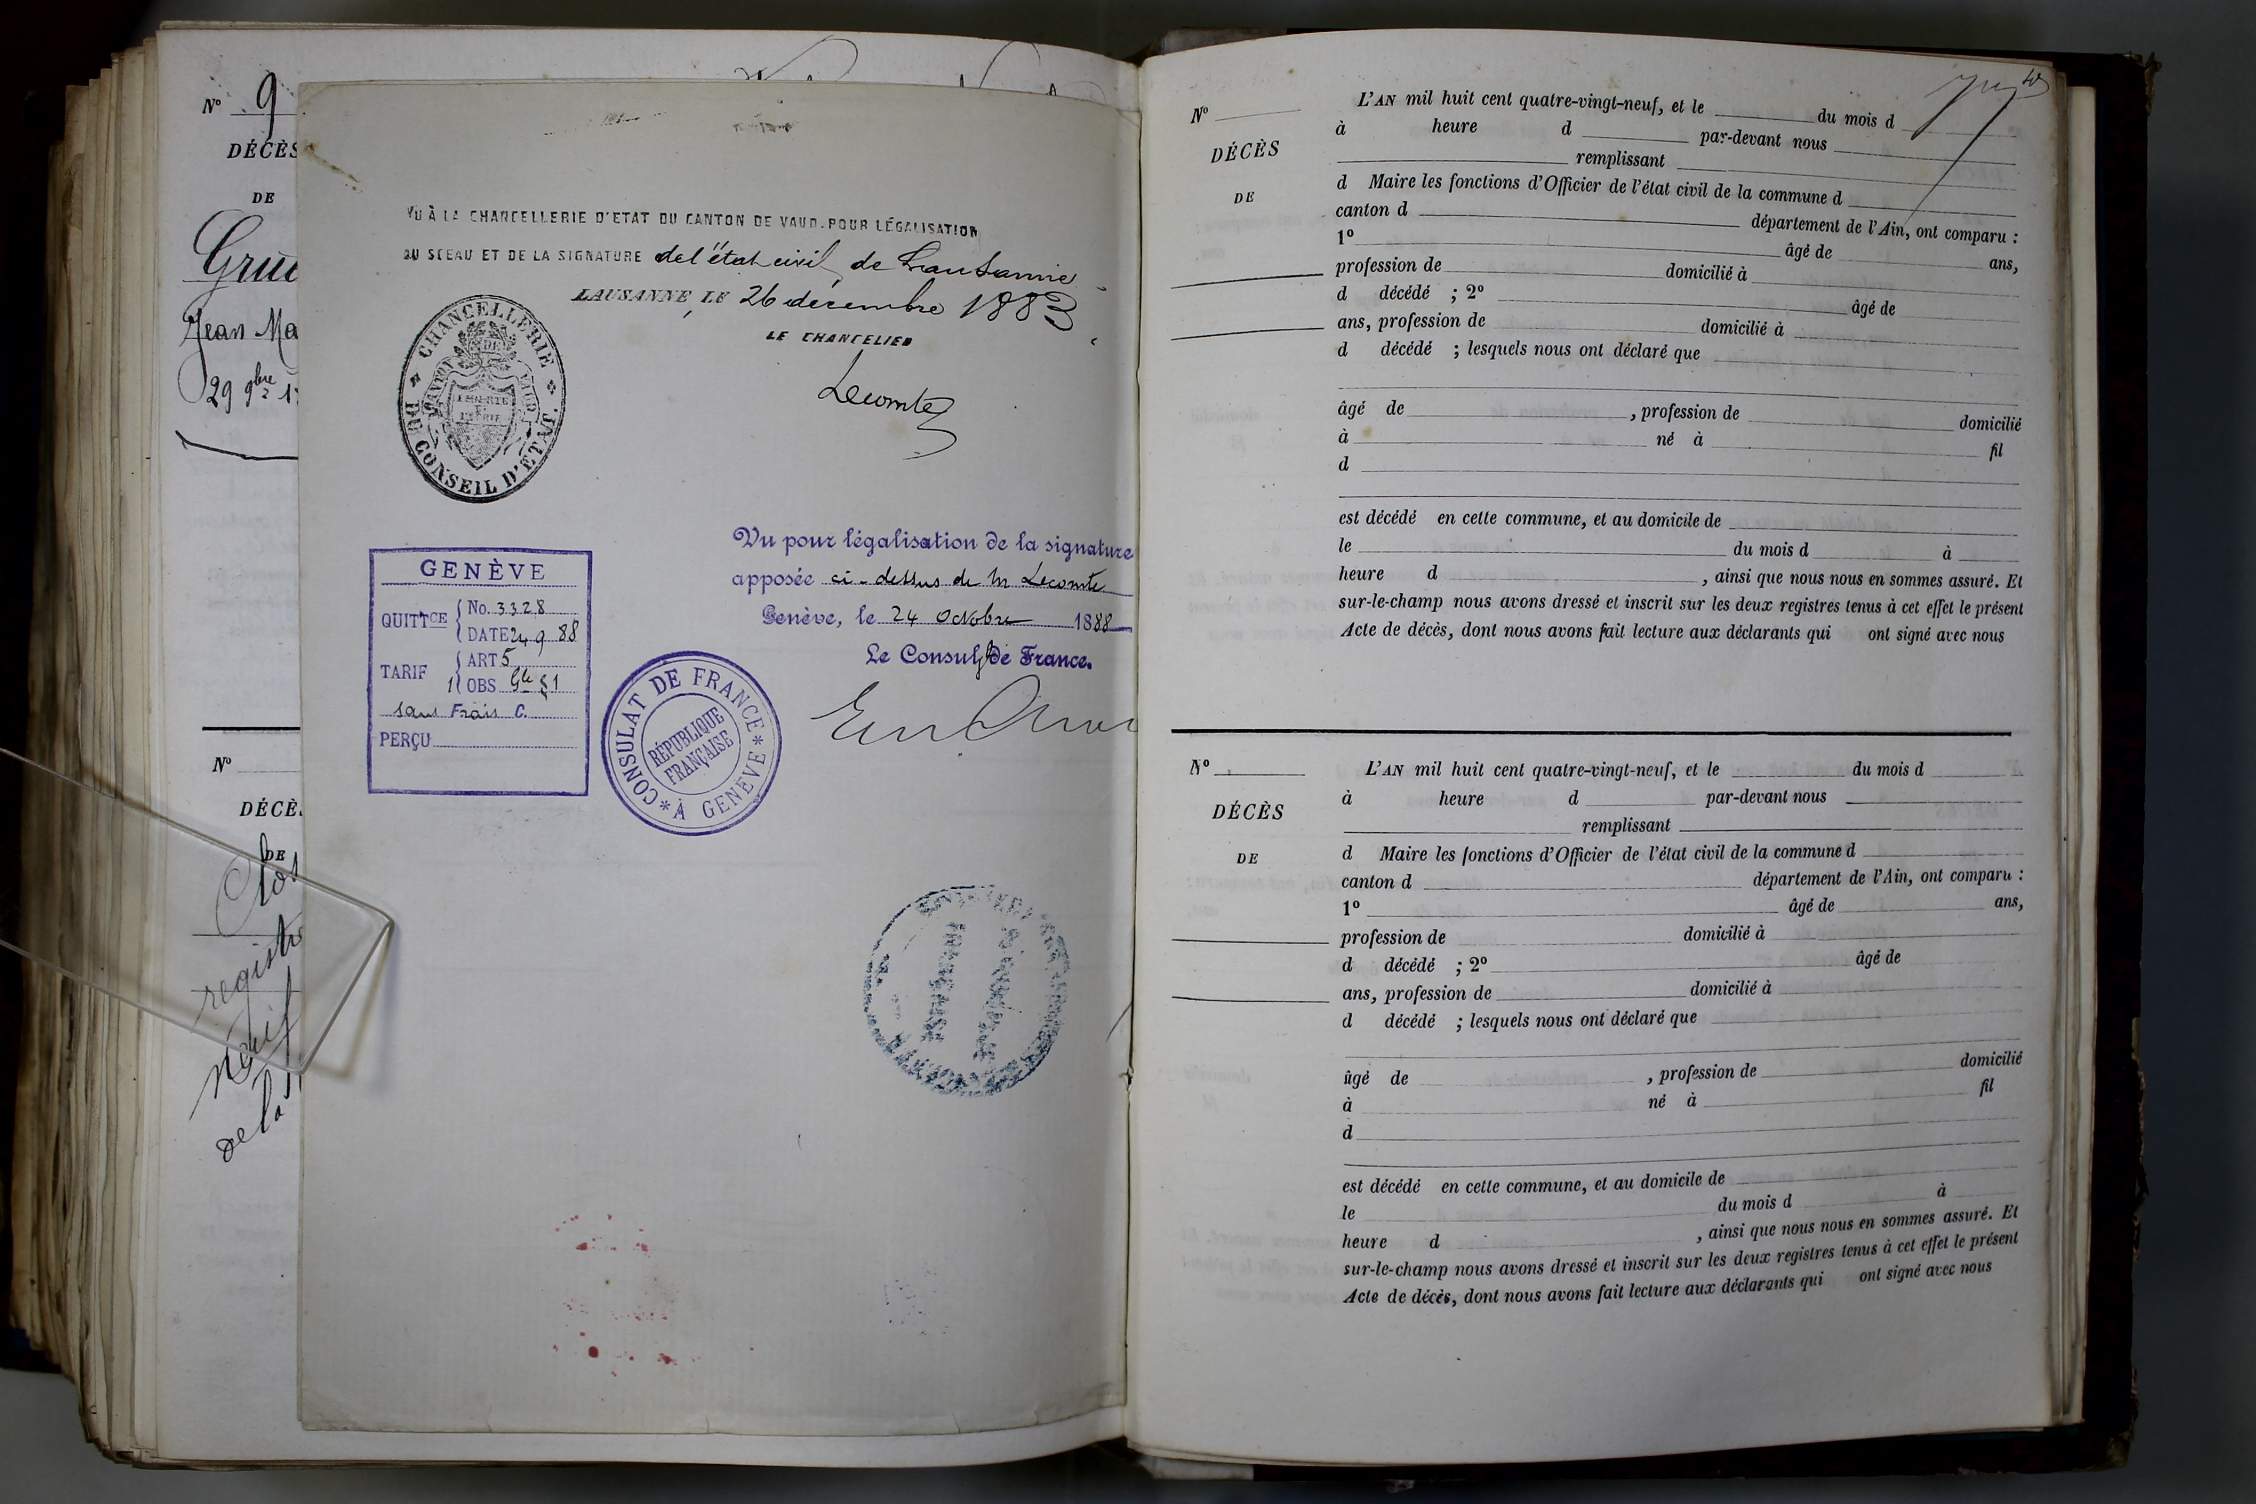 Nº 9
DÉCÈS
DE
Grue
Jean Ma
29 9bre 1
Nº
DÉCÈ
DE
Clos
registre
neuf
de la
VU À LA CHANCELLERIE D'ETAT DU CANTON DE VAUD. POUR LÉGALISATION
DU SCEAU ET DE LA SIGNATURE de l'état civil de Lausanne
LAUSANNE, LE 26 décembre 1883
LE CHANCELIER
Lecomte
CHANCELLERIE
DU CONSEIL D'ETAT
CANTON DE VAUD
LIBERTÉ
ET
PATRIE
Vu pour légalisation de la signature
apposée ci-dessus de M Lecomte
Genève, le 24 Octobre 1888
Le Consul de France.
GENÈVE
QUITTCE No. 3328
DATE 24 9 88
TARIF ART 5
OBS Gle § 1
sans Frais C.
PERÇU
CONSULAT DE FRANCE
À GENÈVE
RÉPUBLIQUE
FRANÇAISE
Nº
DÉCÈS
DE
L'AN mil huit cent quatre-vingt-neuf, et le du mois d
à heure d par-devant nous
remplissant
d Maire les fonctions d'Officier de l'état civil de la commune d
canton d département de l'Ain, ont comparu :
1º âgé de ans,
profession de domicilié à
d décédé ; 2º âgé de
ans, profession de domicilié à
d décédé ; lesquels nous ont déclaré que
âgé de , profession de domicilié
à né à fil
d
est décédé en cette commune, et au domicile de
le du mois d à
heure d , ainsi que nous nous en sommes assuré. Et
sur-le-champ nous avons dressé et inscrit sur les deux registres tenus à cet effet le présent
Acte de décès, dont nous avons fait lecture aux déclarants qui ont signé avec nous
Nº
DÉCÈS
DE
L'AN mil huit cent quatre-vingt-neuf, et le du mois d
à heure d par-devant nous
remplissant
d Maire les fonctions d'Officier de l'état civil de la commune d
canton d département de l'Ain, ont comparu :
1º âgé de ans,
profession de domicilié à
d décédé ; 2º âgé de
ans, profession de domicilié à
d décédé ; lesquels nous ont déclaré que
âgé de , profession de domicilié
à né à fil
d
est décédé en cette commune, et au domicile de
le du mois d à
heure d , ainsi que nous nous en sommes assuré. Et
sur-le-champ nous avons dressé et inscrit sur les deux registres tenus à cet effet le présent
Acte de décès, dont nous avons fait lecture aux déclarants qui ont signé avec nous